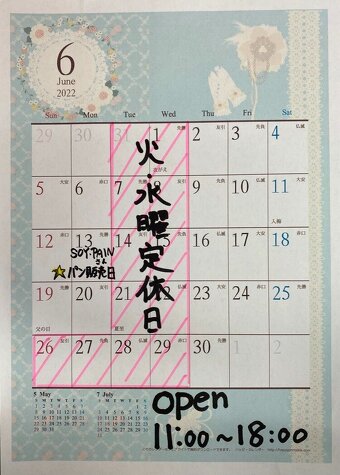 6
June
2022
Sun Mon Tue Wed Thu Fri Sat
29 30 31 1 先勝 2 友引 3 先負 4 仏滅
5 大安 6 赤口 7 先勝 8 9 10 仏滅 11 大安
入梅
12 赤口 13 先勝 14 15 16 17 大安 18 赤口
SOY・PAIN
さん
☆パン販売日
19 先勝 20 友引 21 22 23 24 赤口 25 先勝
父の日 夏至
26 友引 27 先負 28 仏滅 29 大安 30 赤口 1 2
火・水曜定休日
5 May 7 July
open
11:00~18:00